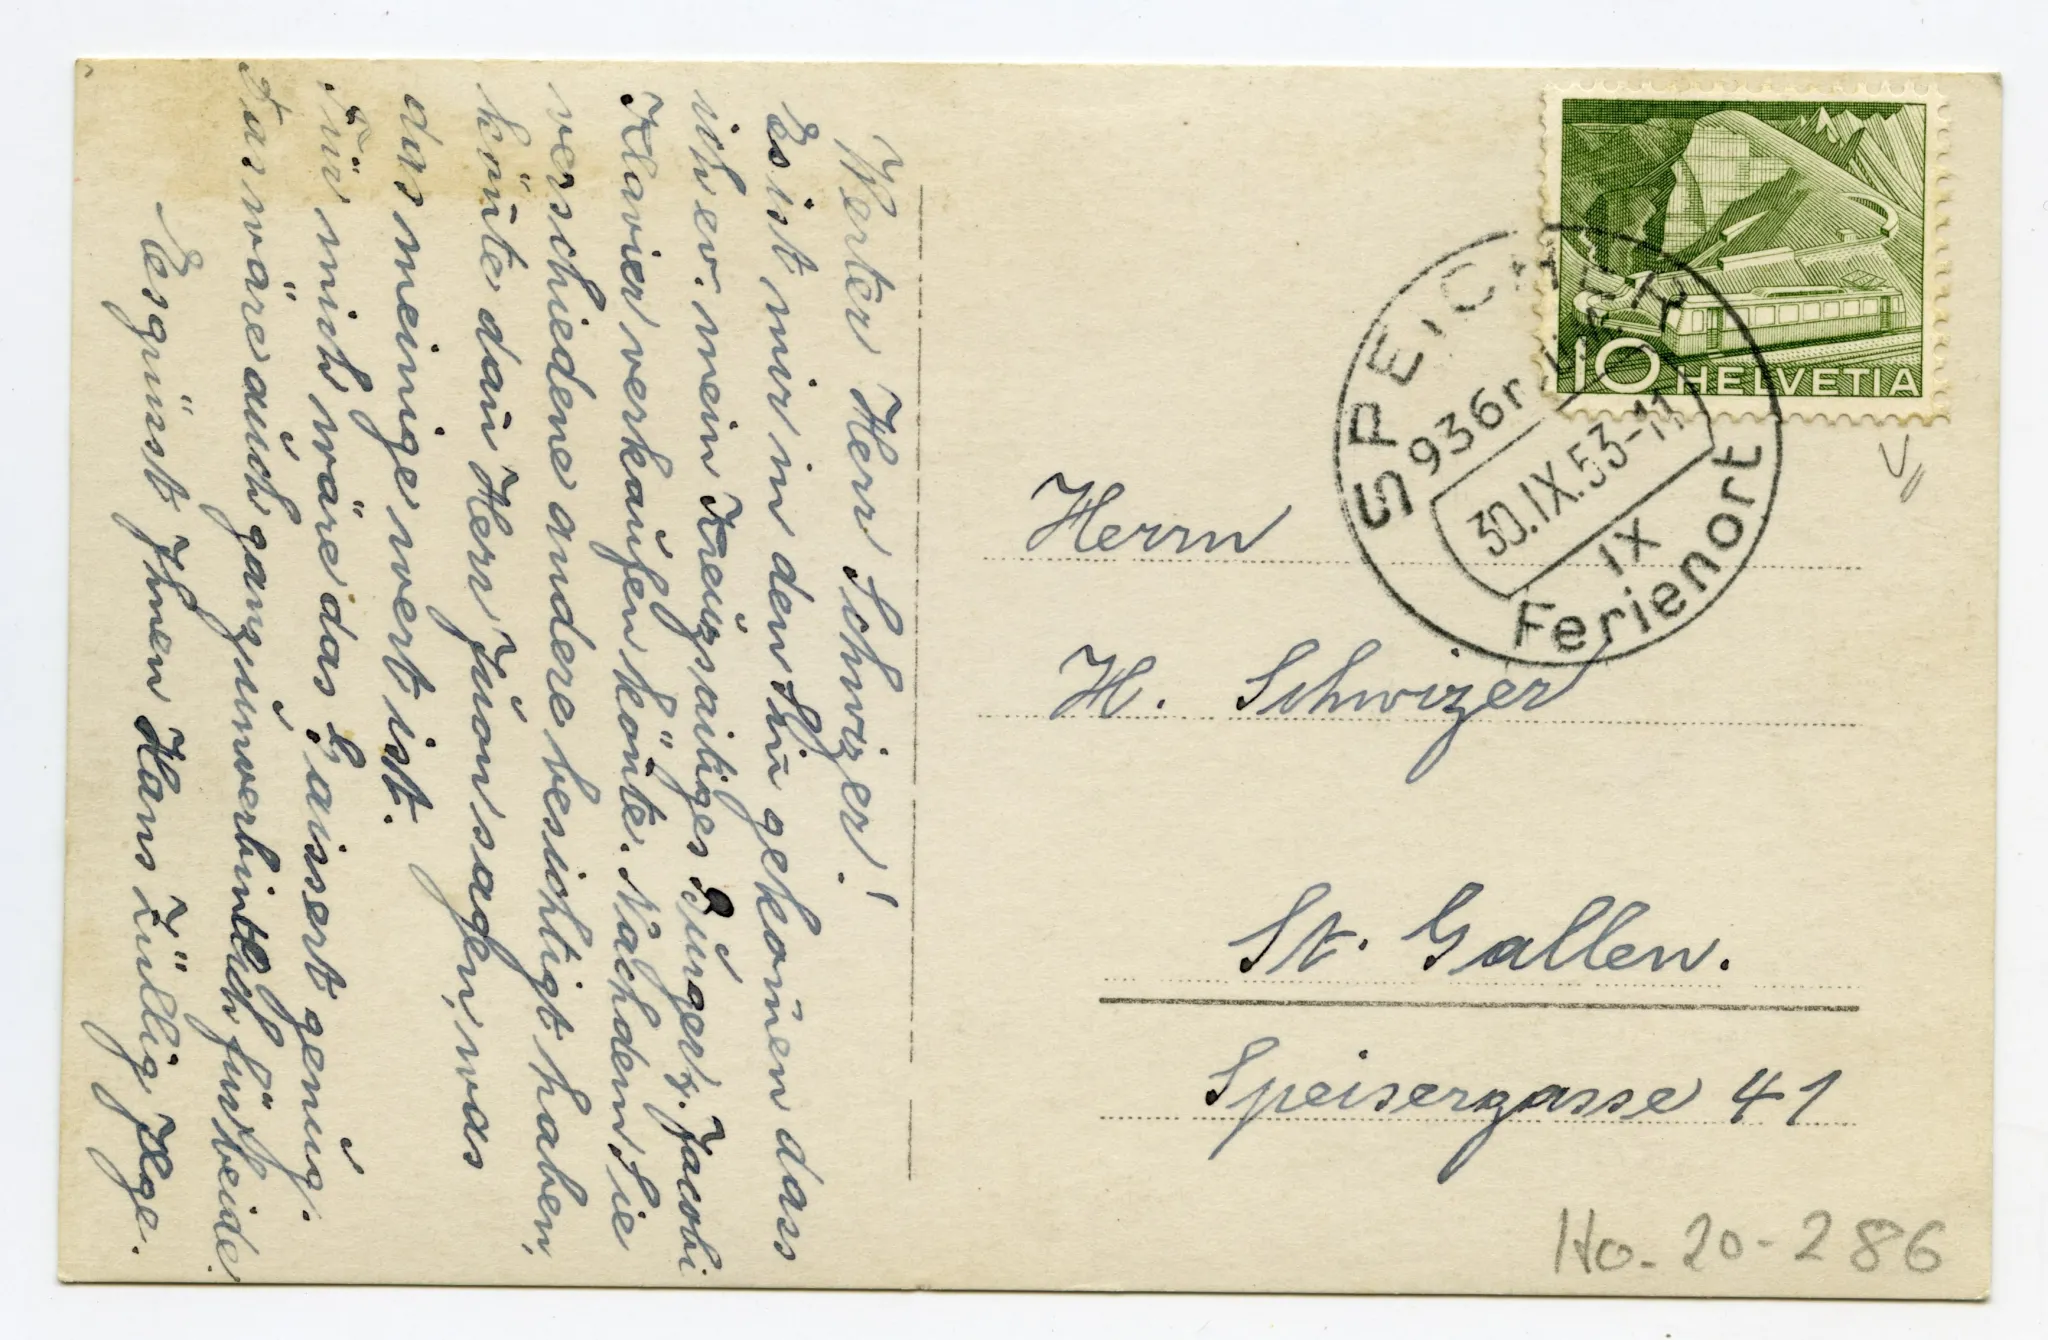 Werter Herr Schwizer!
Es ist mir in den Siñ gekom̄en dass
ich ev. mein Kreuzsaitiges Burger & Jacobi
Klavier verkaufen kön̄te. Nachdem Sie
verschiedene andere besichtigt haben,
kön̄te dan̄ Herr Juon sagen, was
das meinige wert ist.
Für mich wäre das äussert genug.
Das wäre auch ganz unverbindlich für beide.
Es grüsst Ihnen Hans Züllig Egge.
10 HELVETIA
SPEICHER
936m ü. M.
30.IX.53-11
IX
Ferienort
Herrn
H. Schwizer
St. Gallen.
Speisergasse 41
Ho-20-286